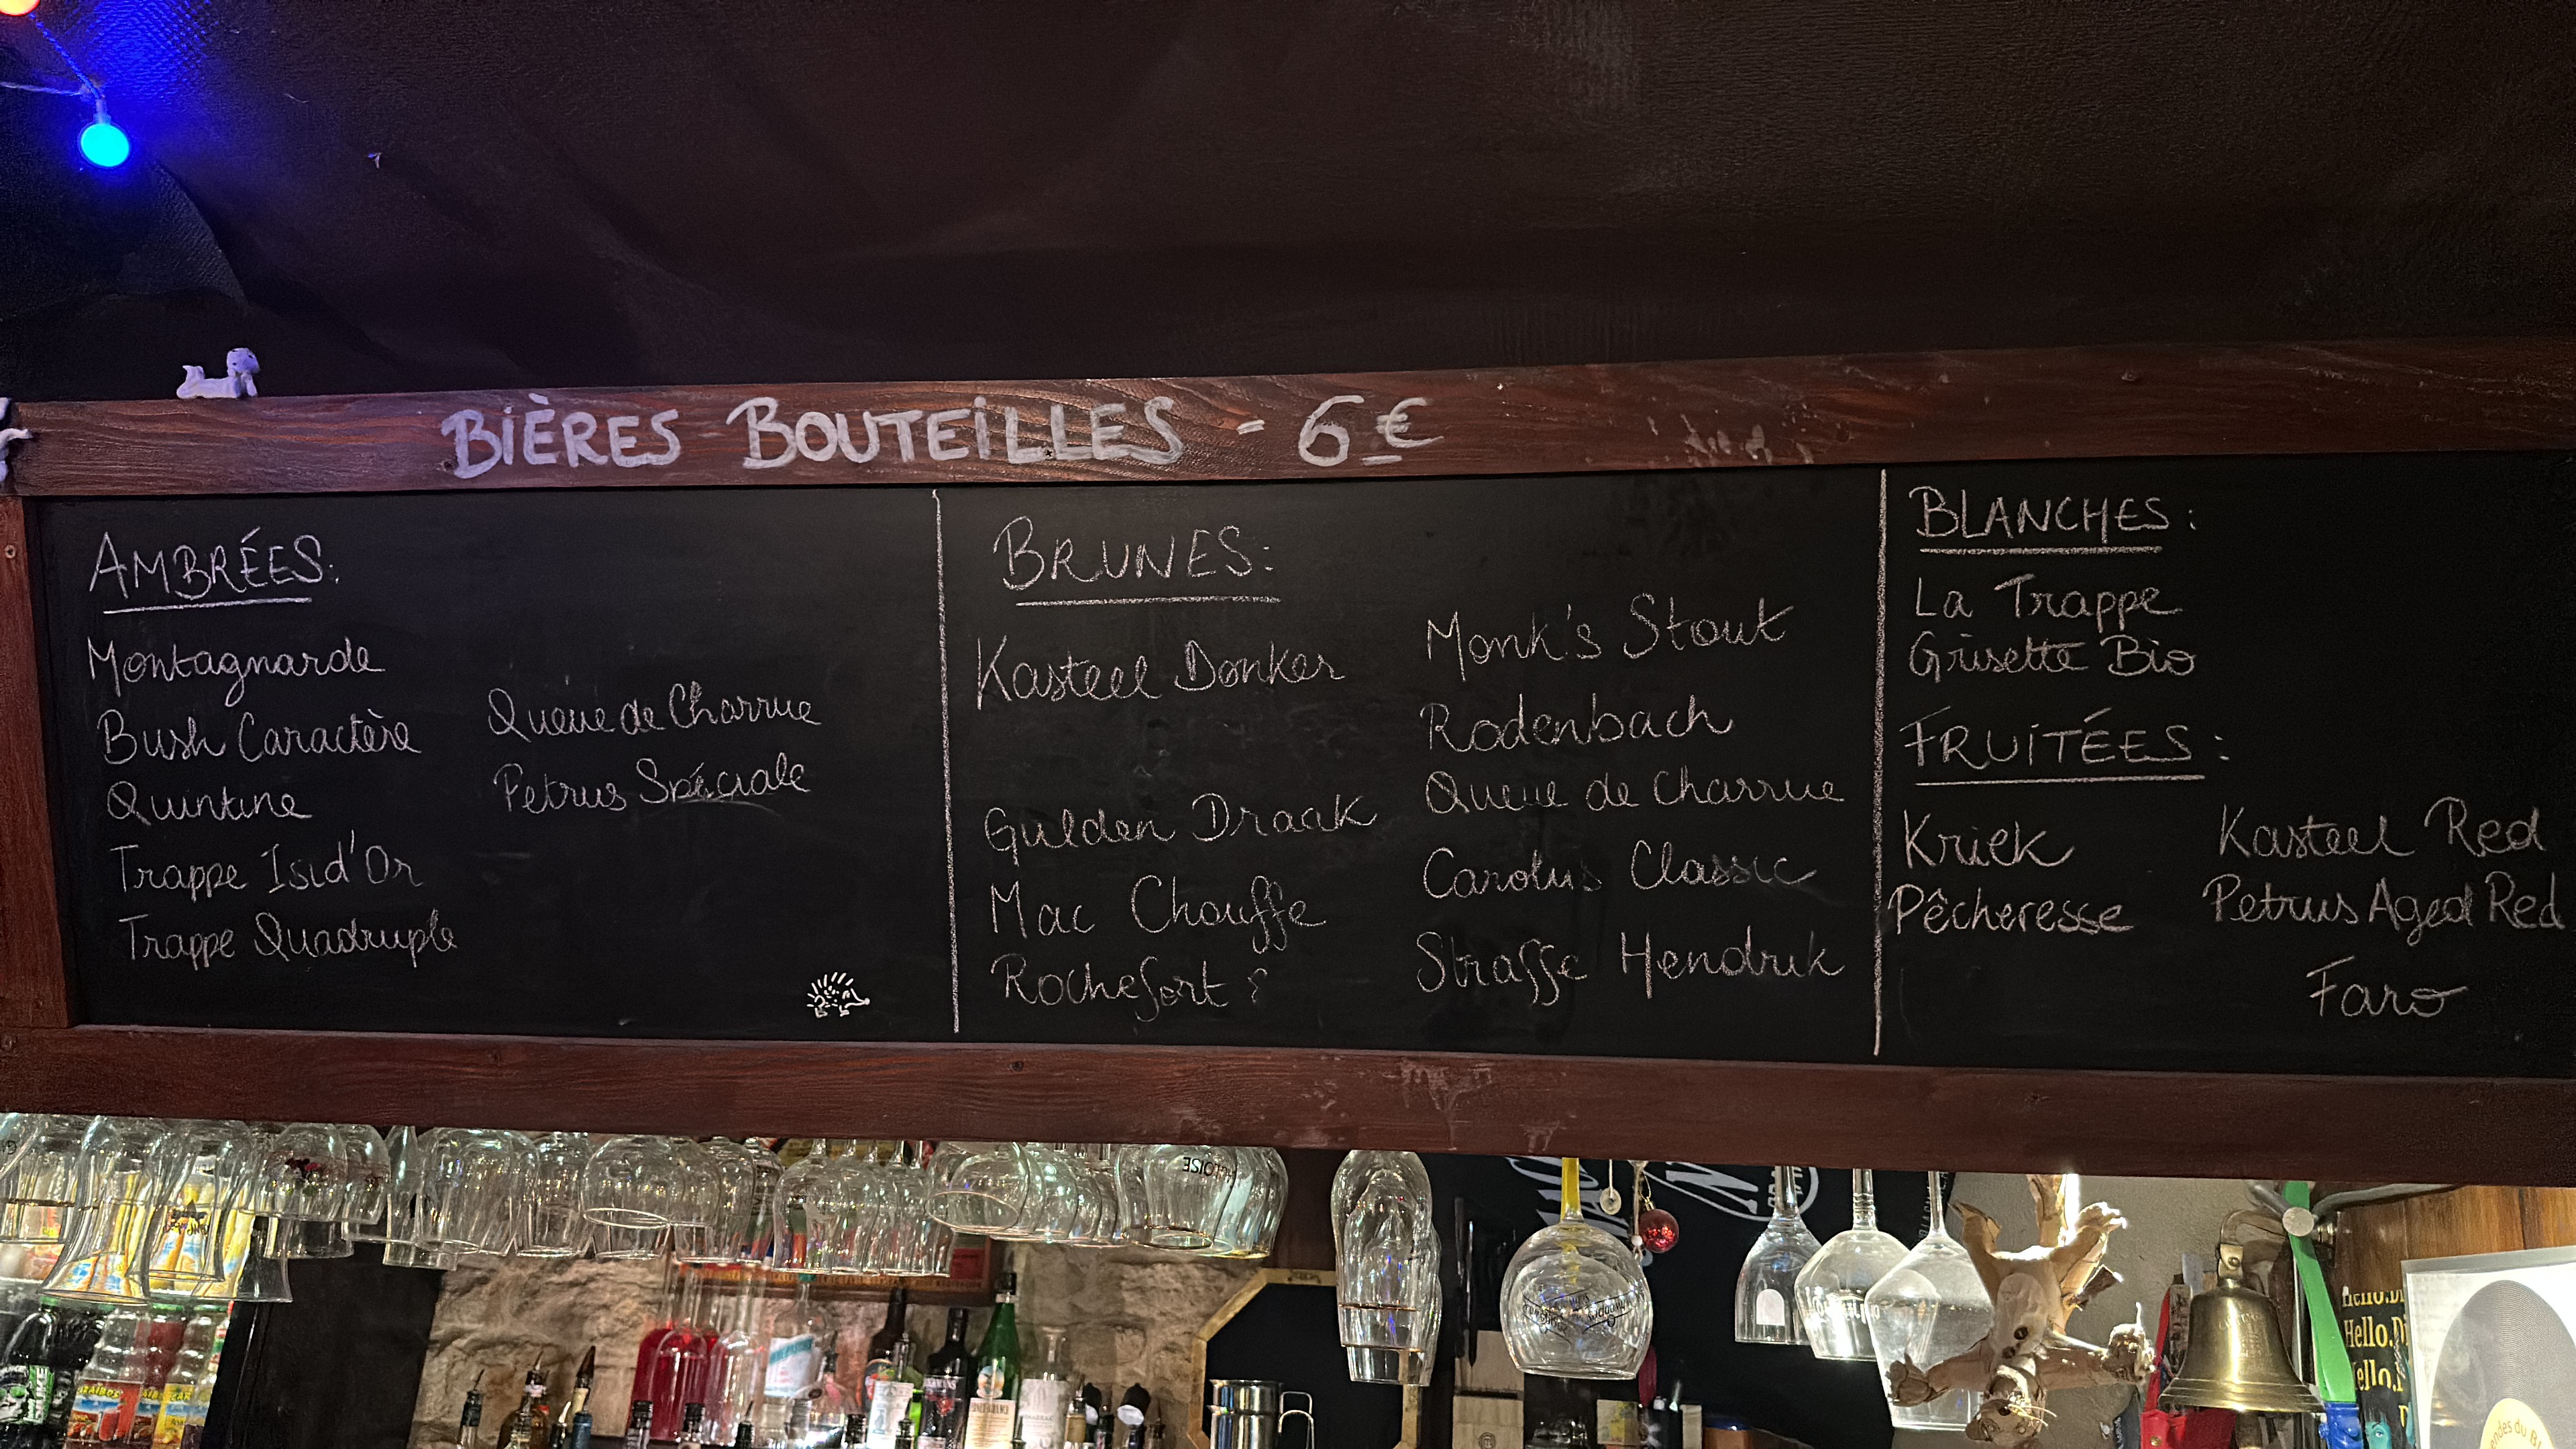 BIÈRES BOUTEILLES - 6€
AMBRÉES:
Montagnarde
Bush Caractère
Quintine
Trappe Isid'Or
Trappe Quadruple
Queue de Charrue
Petrus Spéciale
BRUNES:
Kasteel Donker
Gulden Draak
Mac Chouffe
Rochefort 8
Monk's Stout
Rodenbach
Queue de Charrue
Carolus Classic
Straffe Hendrik
BLANCHES:
La Trappe
Grisette Bio
FRUITÉES:
Kriek
Pêcheresse
Kasteel Red
Petrus Aged Red
Faro
Hello.Di
Hello.Di